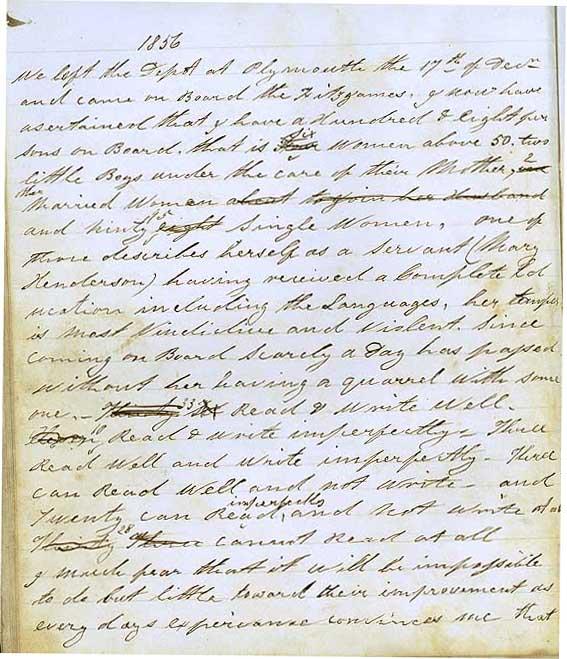 1856
We left the Depot at Plymouth the 17th of Decr
and came on Board the Fitzjames. I now have
asertained that I have a Hundred & Eight per
sons on Board. that is six Women above 50. two
little Boys under the care of their Mother, 2
other Married Women about to join her Husband
and Ninty 95 eight Single Women, one of
those describes herself as a Servant (Mary
Henderson) having received a Complete Ed
ucation including the Languages, her temper
is most Vindictive and Violent. Since
Coming on Board Scarcely a Day has passed
without her having a quarrel With some
one. – Thirty 33 Read & Write Well.
Read & write imperfectly – Three
Read Well and Write imperfectly – Three
can Read Well and not Write – and
Twenty can Read imperfectly, and not Write at all
Thirty Three 28 cannot Read at all
I much fear that it will be impossible
to do but little toward their improvement as
every days experiance convinces me that